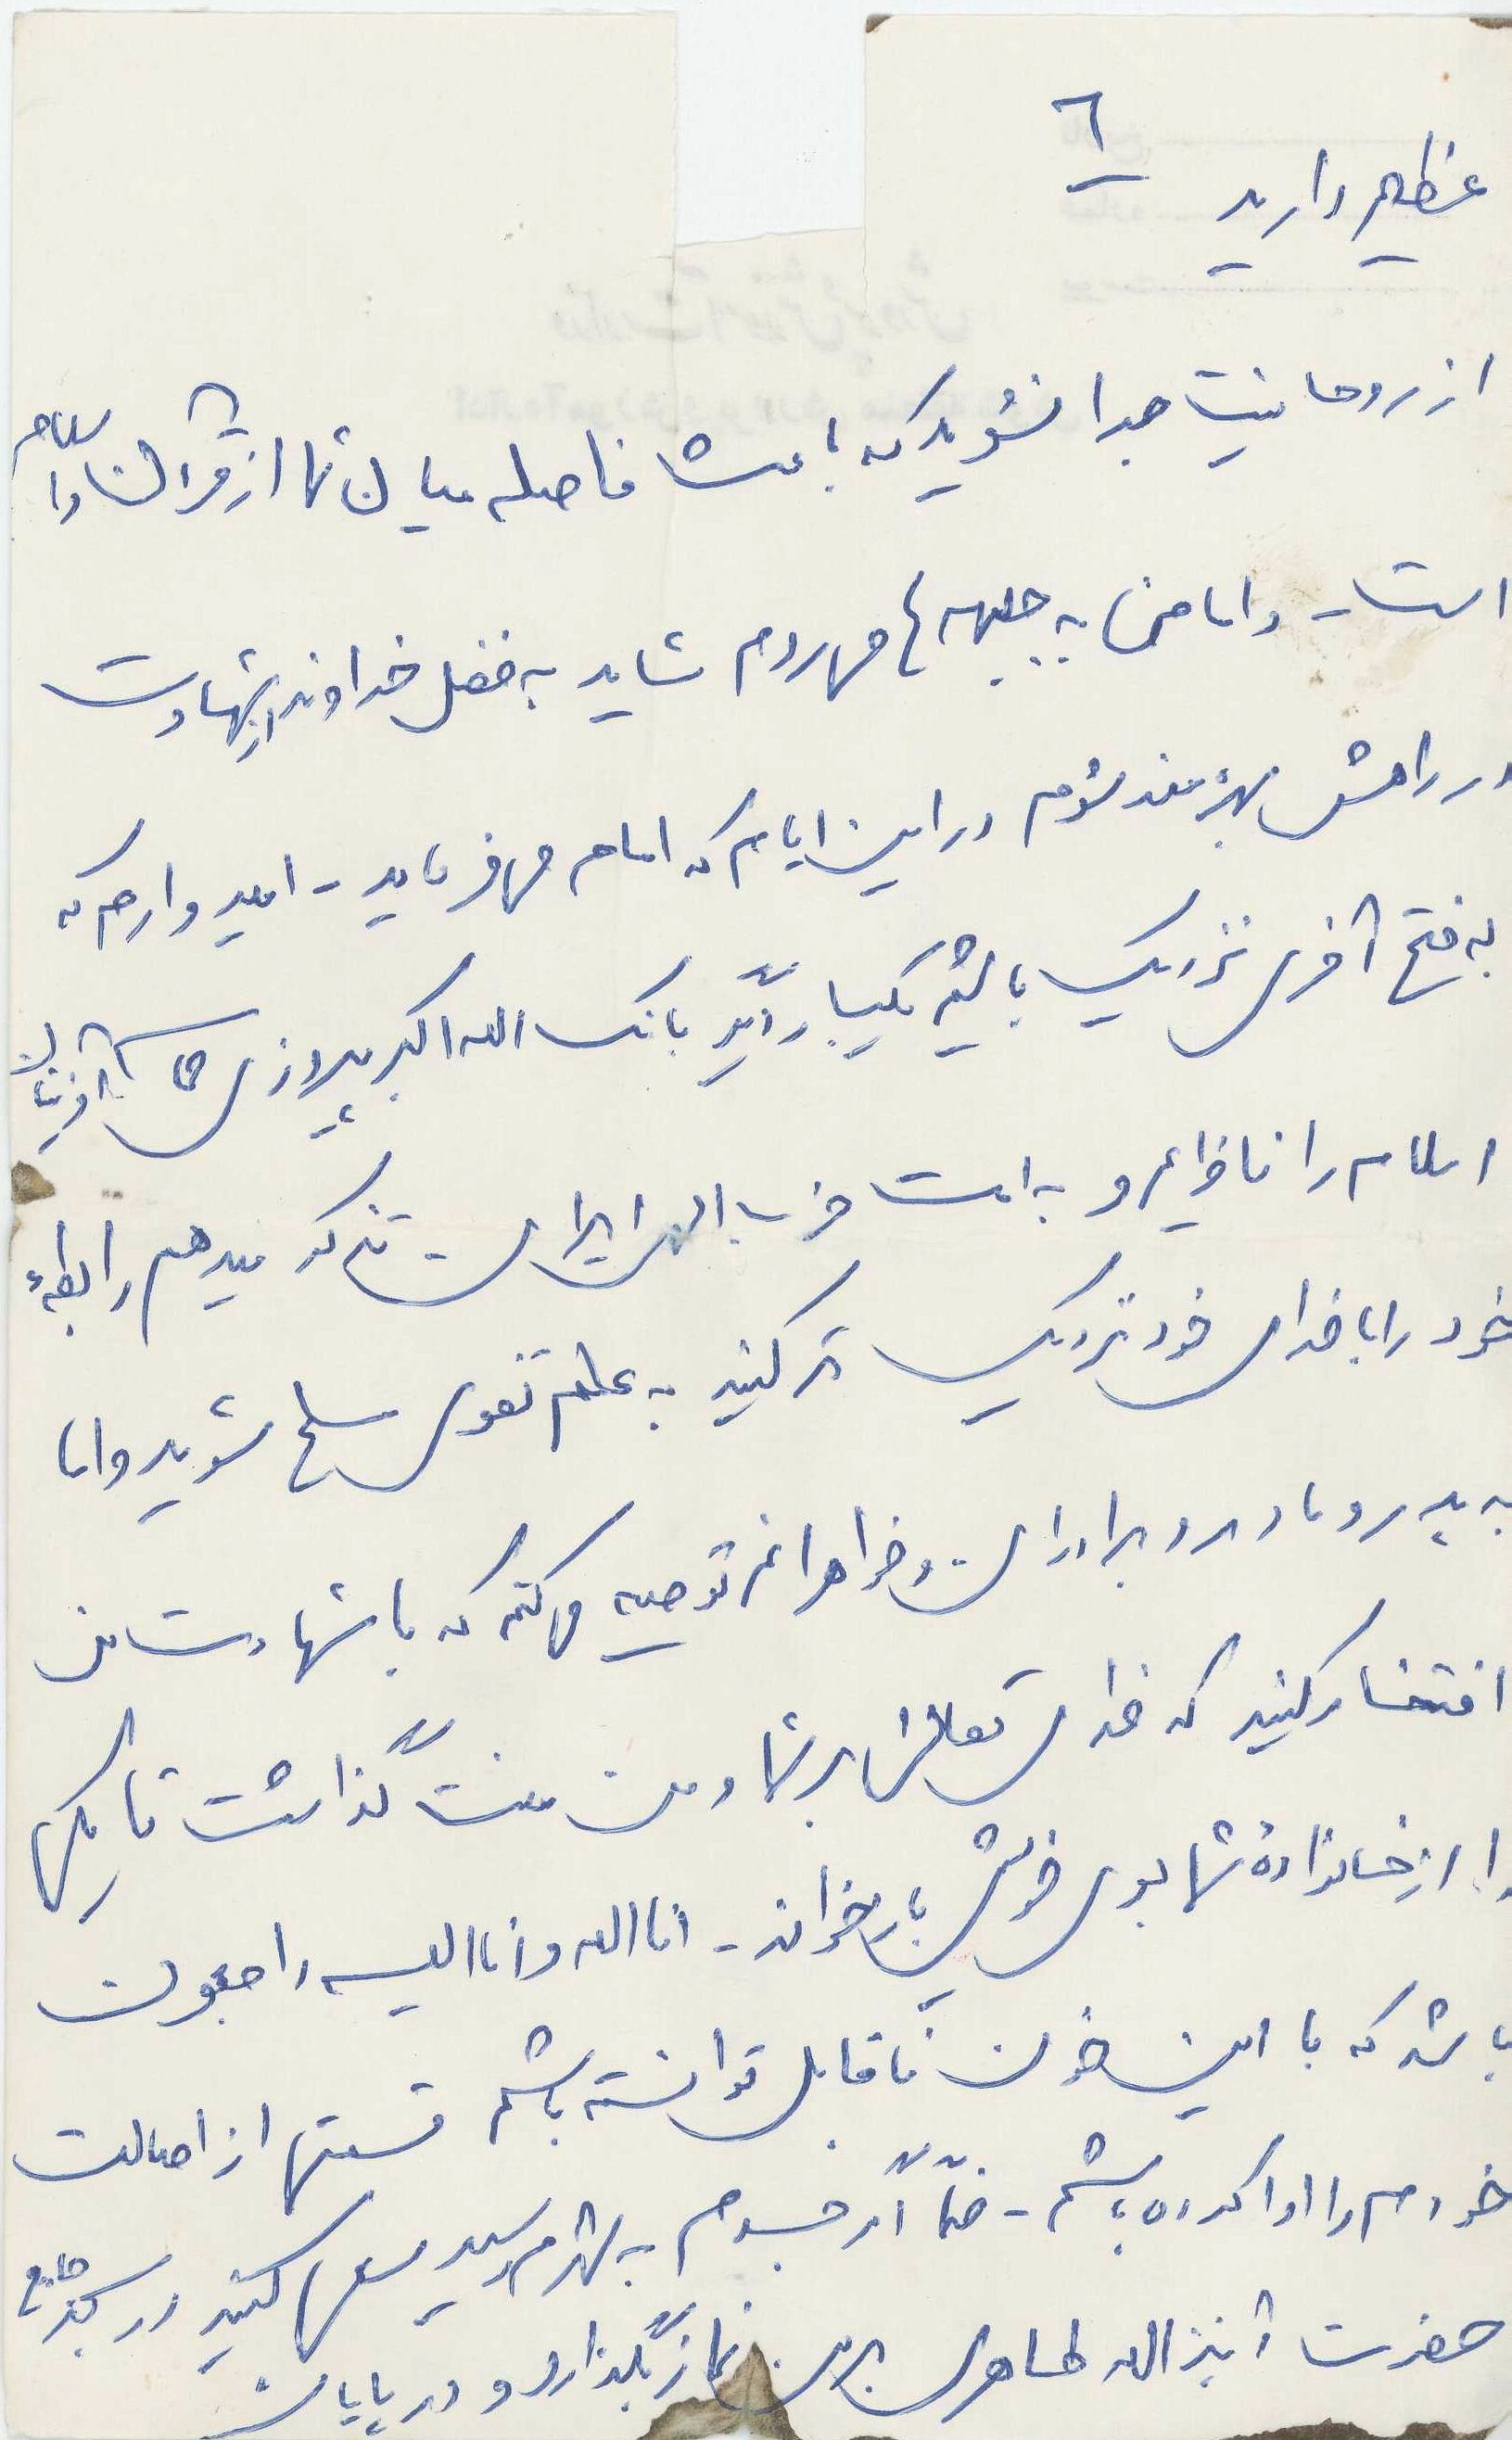 ٦
عظیم دارید
از روحانیت جدا نشوید که باعث فاصله میان شما از قرآن و اسلام
است - و اما من به جبهه ها می روم شاید به فضل خداوند از شهادت
در راهش بهره مند شوم در این ایام که امام می فرماید - امیدوارم که
به فتح آخری نزدیک باشیم یکبار دیگر بانگ الله اکبر پیروزی
اسلام را و به امت حزب الهی ایران تذکر میدهم رابطهٔ
خود را با خدای خود نزدیک تر کنید به علم تقوی مسلح شوید و اما
به پدر و مادر و برادران و خواهرانم توصیه می کنم که با شهادت من
افتخار کنید که خدای تعالی بر شما و من منت گذاشت تا یکی
را از خانوادهٔ شما بسوی خویش باز خواند - انا لله و انا الیه راجعون
باشد که با این خون ناقابل توانسته باشم قسمتی از اصالت
خودم را ادا کرده باشم - ضمناً اگر جسدم به شهر رسید سعی کنید در مسجد جامع
حضرت آیت الله طاهری بر من نماز بگذارد و در پایان